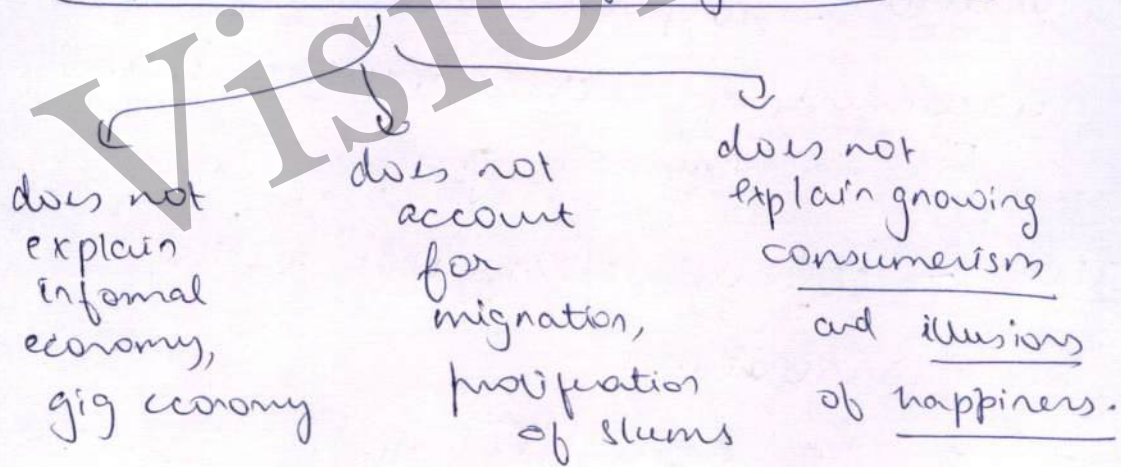 Vision
does not
explain
informal
economy,
gig economy
does not
account
for
migration,
proliferation
of slums
does not
explain growing
consumerism
and illusions
of happiness.